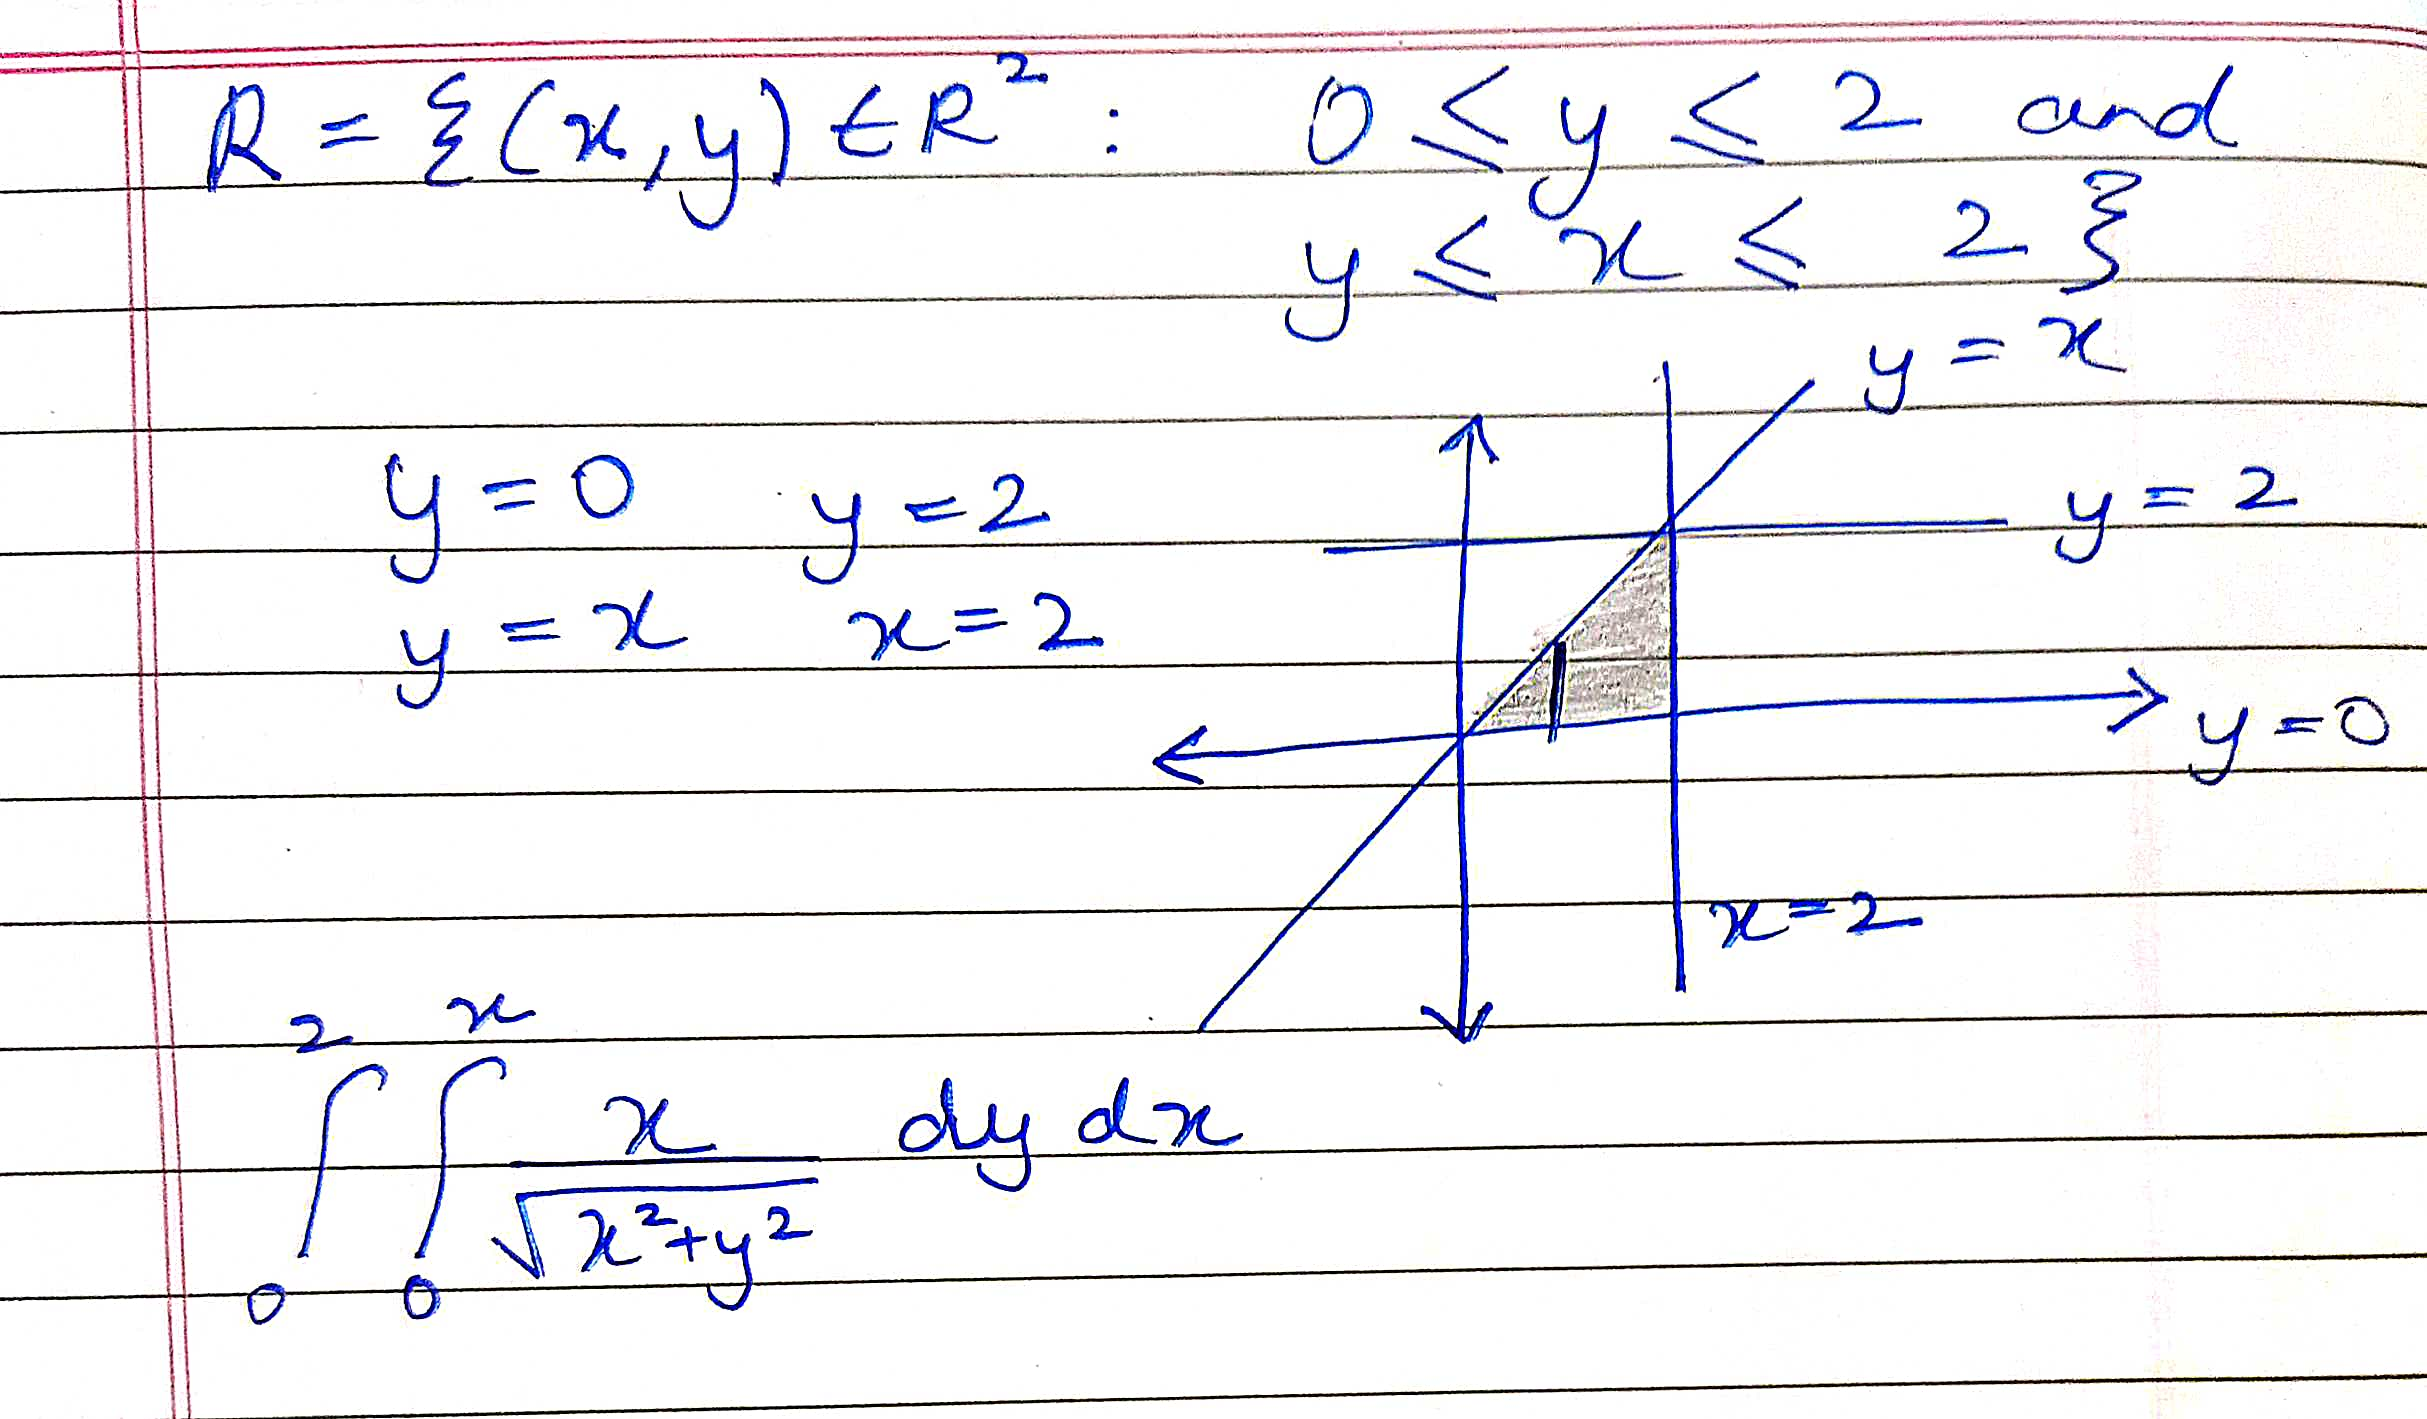 R = {(x, y) ∈ R² : 0 ≤ y ≤ 2 and
y ≤ x ≤ 2}
y = x
y = 0 y = 2
y = 2
y = x x = 2
y = 0
x = 2
∫₀² ∫₀ˣ x/√(x² + y²) dy dx